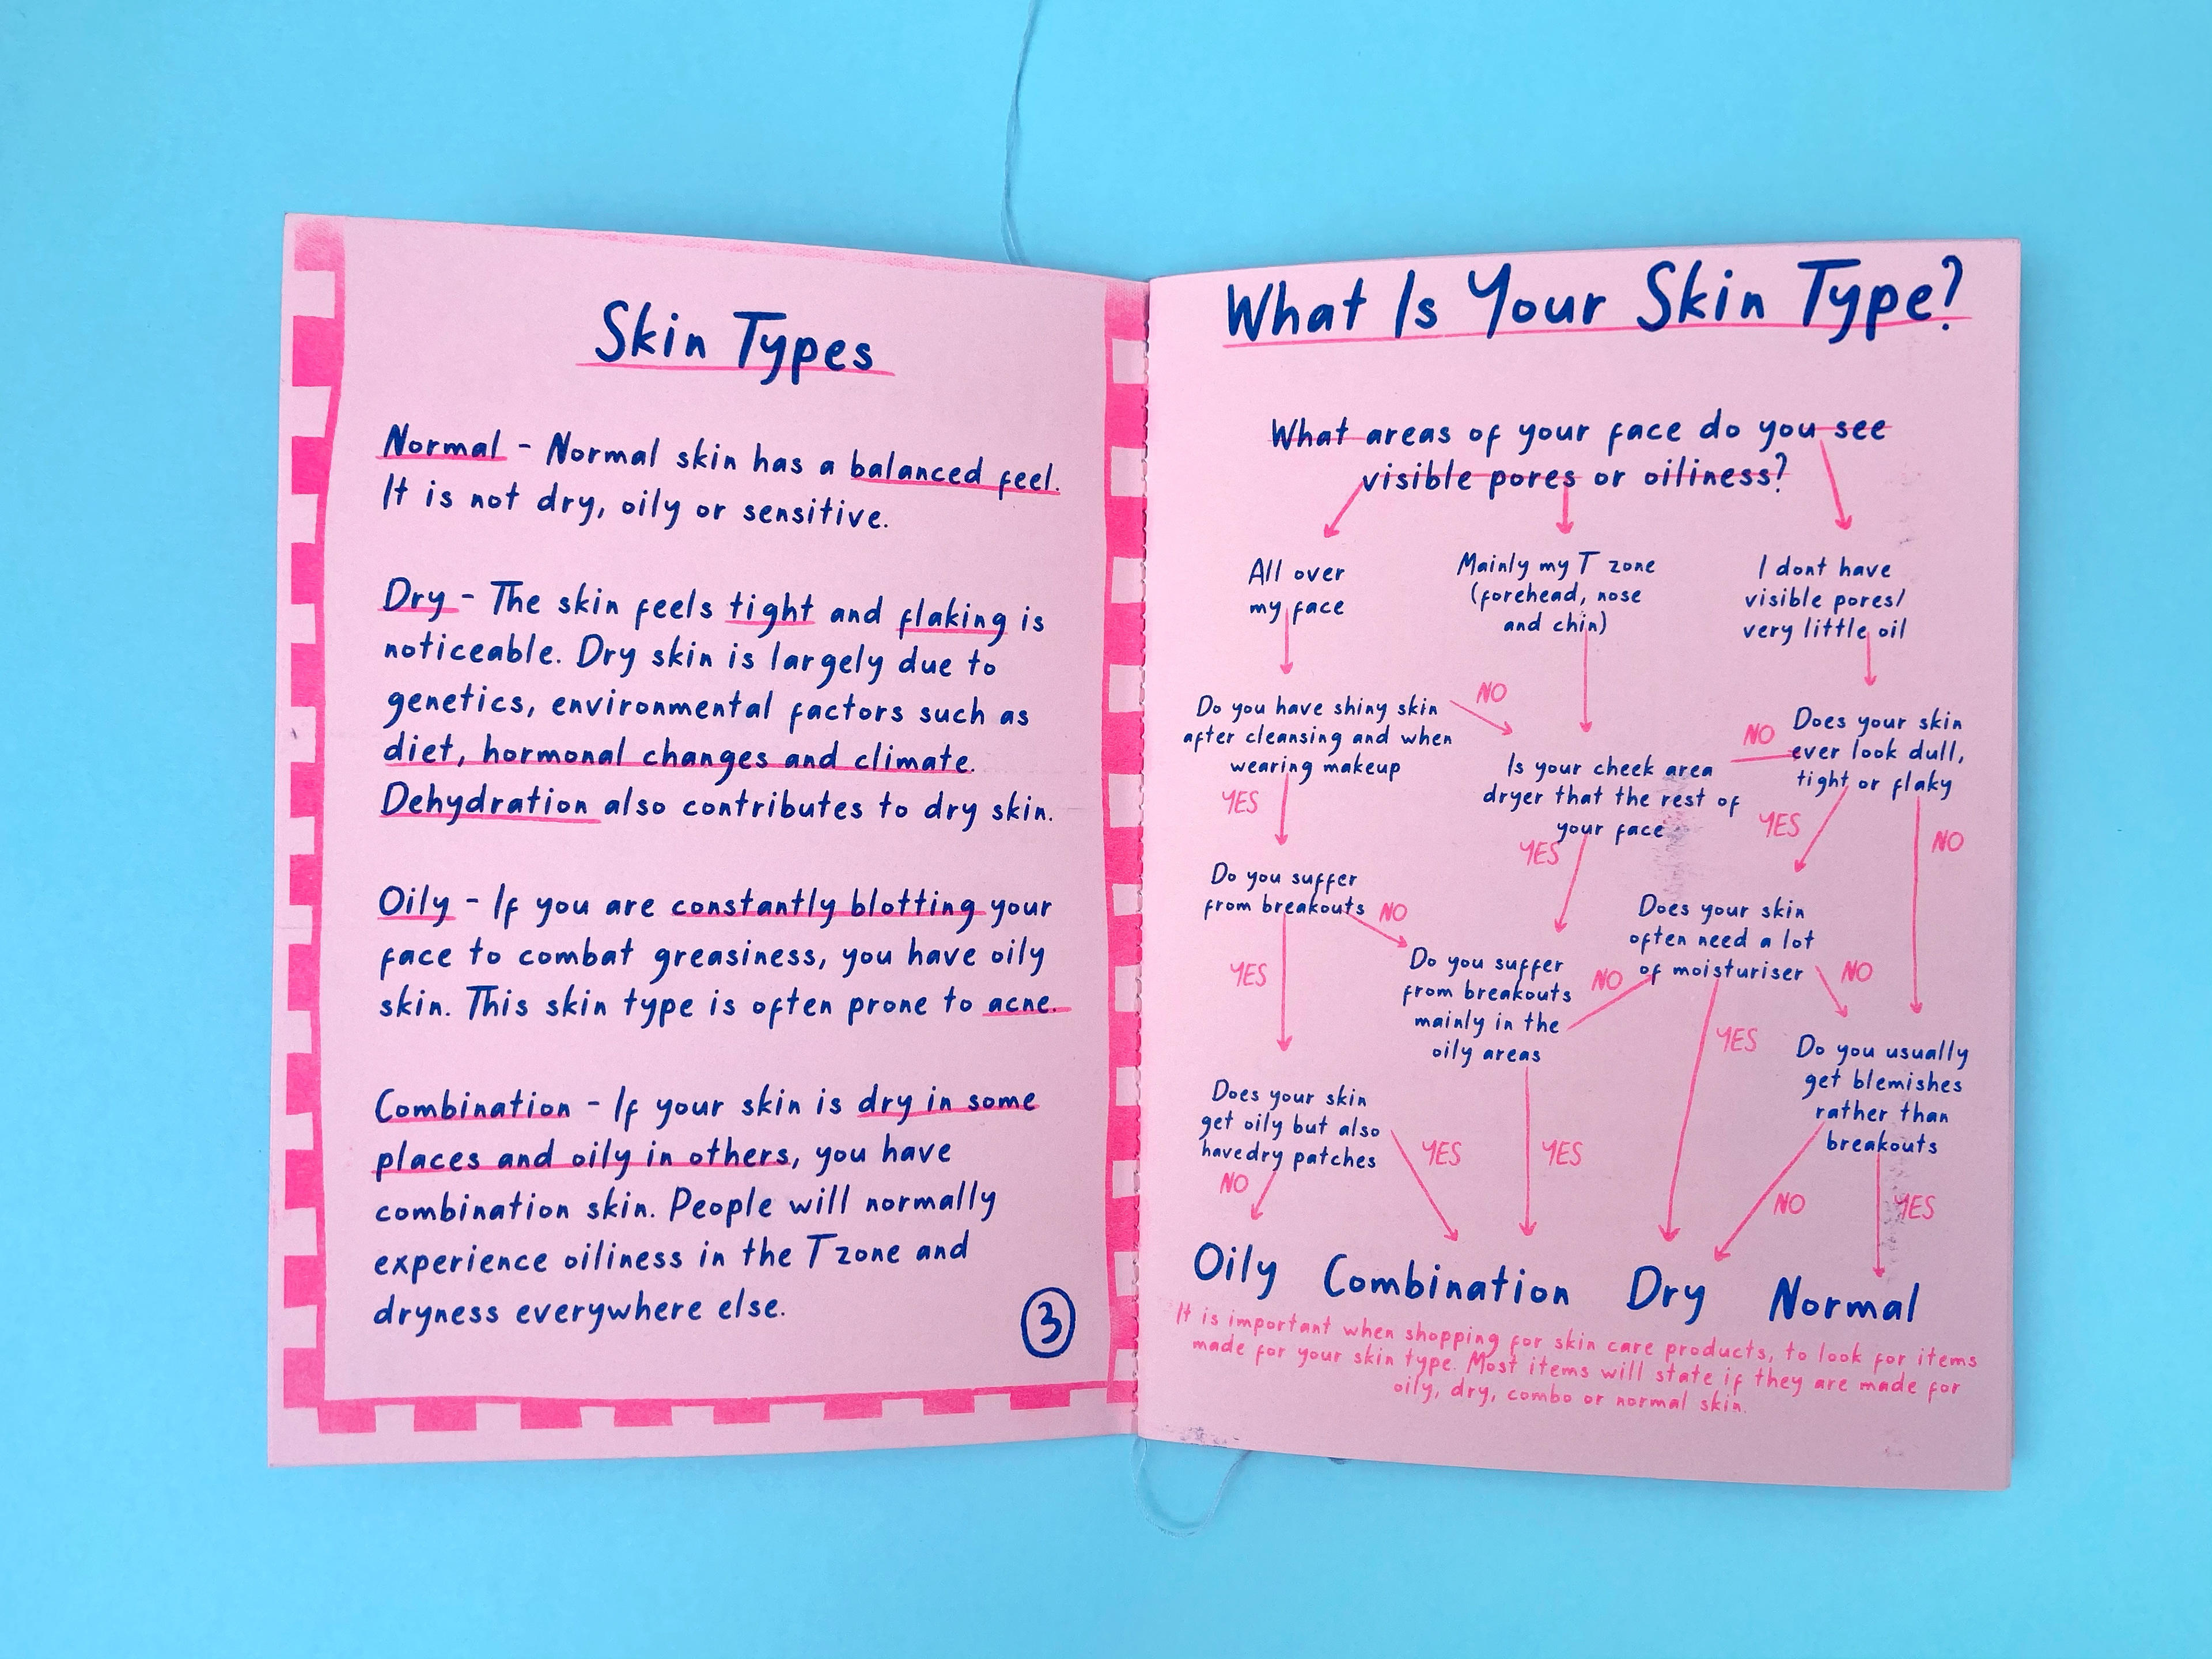 Skin Types
Normal - Normal skin has a balanced feel.
It is not dry, oily or sensitive.
Dry - The skin feels tight and flaking is
noticeable. Dry skin is largely due to
genetics, environmental factors such as
diet, hormonal changes and climate.
Dehydration also contributes to dry skin.
Oily - If you are constantly blotting your
face to combat greasiness, you have oily
skin. This skin type is often prone to acne.
Combination - If your skin is dry in some
places and oily in others, you have
combination skin. People will normally
experience oiliness in the T zone and
dryness everywhere else.
3
What Is Your Skin Type?
What areas of your face do you see
visible pores or oiliness?
All over
my face
Mainly my T zone
(forehead, nose
and chin)
I dont have
visible pores/
very little oil
Do you have shiny skin
after cleansing and when
wearing makeup
NO
YES
Is your cheek area
dryer that the rest of
your face
NO
YES
Does your skin
ever look dull,
tight or flaky
YES
NO
Do you suffer
from breakouts
NO
YES
Do you suffer
from breakouts
mainly in the
oily areas
NO
YES
Does your skin
often need a lot
of moisturiser
NO
YES
Do you usually
get blemishes
rather than
breakouts
NO
YES
Does your skin
get oily but also
have dry patches
NO
YES
Oily Combination Dry Normal
It is important when shopping for skin care products, to look for items
made for your skin type. Most items will state if they are made for
oily, dry, combo or normal skin.